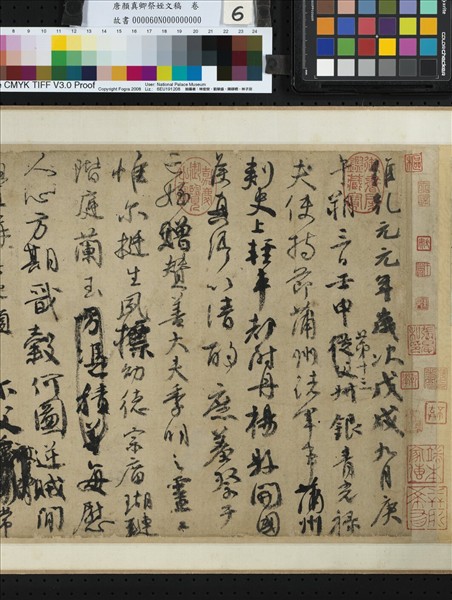 唐顏真卿祭姪文稿 卷
故書 000060N000000000
6
8 9 10 11 12 13 14 15 16 17 18 19 20 21 22 23 24
CMYK TIFF V3.0 Proof
Copyright Fogra 2008
User: National Palace Museum
維乾元元年歲次戊戌九月庚
午朔三日壬申第十三從父銀青光祿
夫使持節蒲州諸軍事蒲州
刺史上輕車都尉丹楊縣開國
侯真卿以清酌庶羞祭于
亡姪贈贊善大夫季明之靈曰
惟爾挺生夙標幼德宗廟瑚璉
階庭蘭玉方憑積善每慰
人心方期戩穀何圖逆賊間